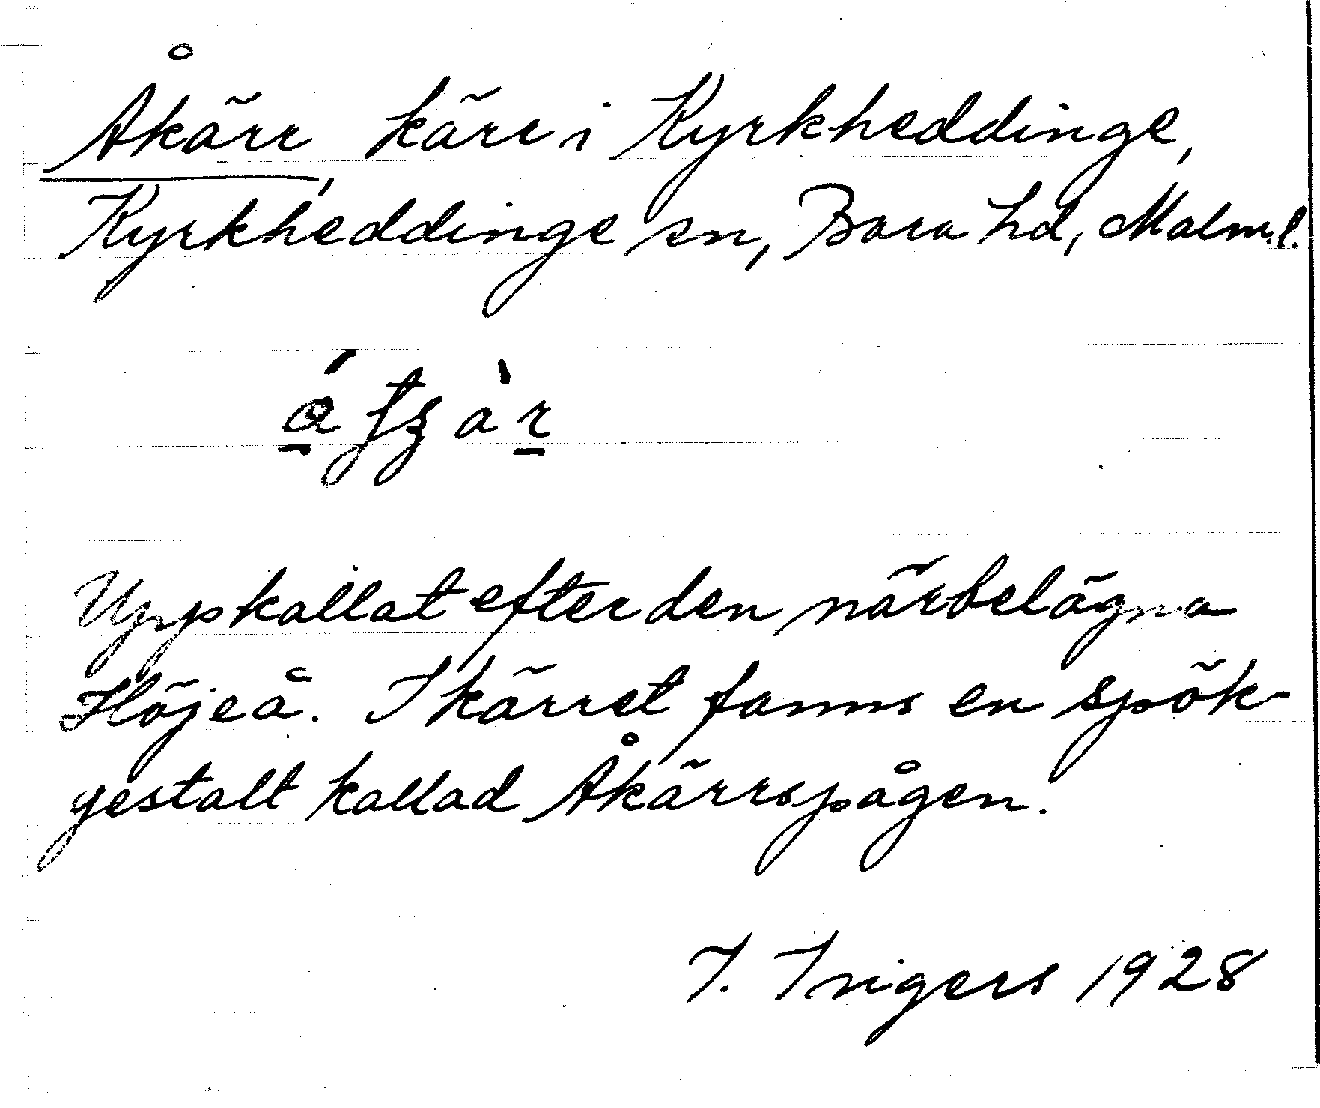 Åkärr, kärr i Kyrkheddinge,
Kyrkheddinge sn, Bara hd, Malm.l.
Uppkallat efter den närbelägna
Höjeå. I kärret fanns en spök-
gestalt kallad Åkärrspågen.
I. Ingers 1928